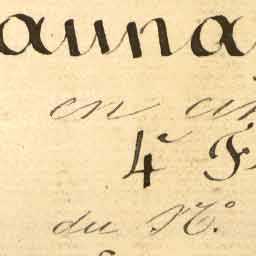 auna
en
4e F
du No